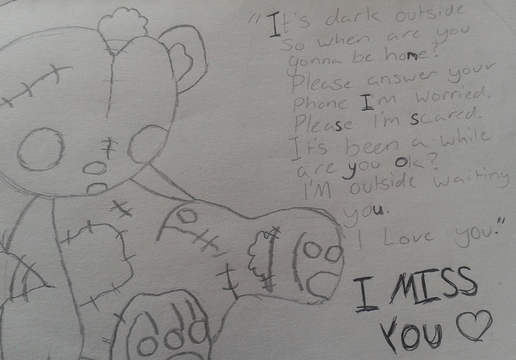 "It's dark outside
So when are you
gonna be home?
Please answer your
Phone Im worried.
Please I'm scared.
It's been a while
are you ok?
I'M outside waiting
you.
I Love you."
I MISS
YOU ♡